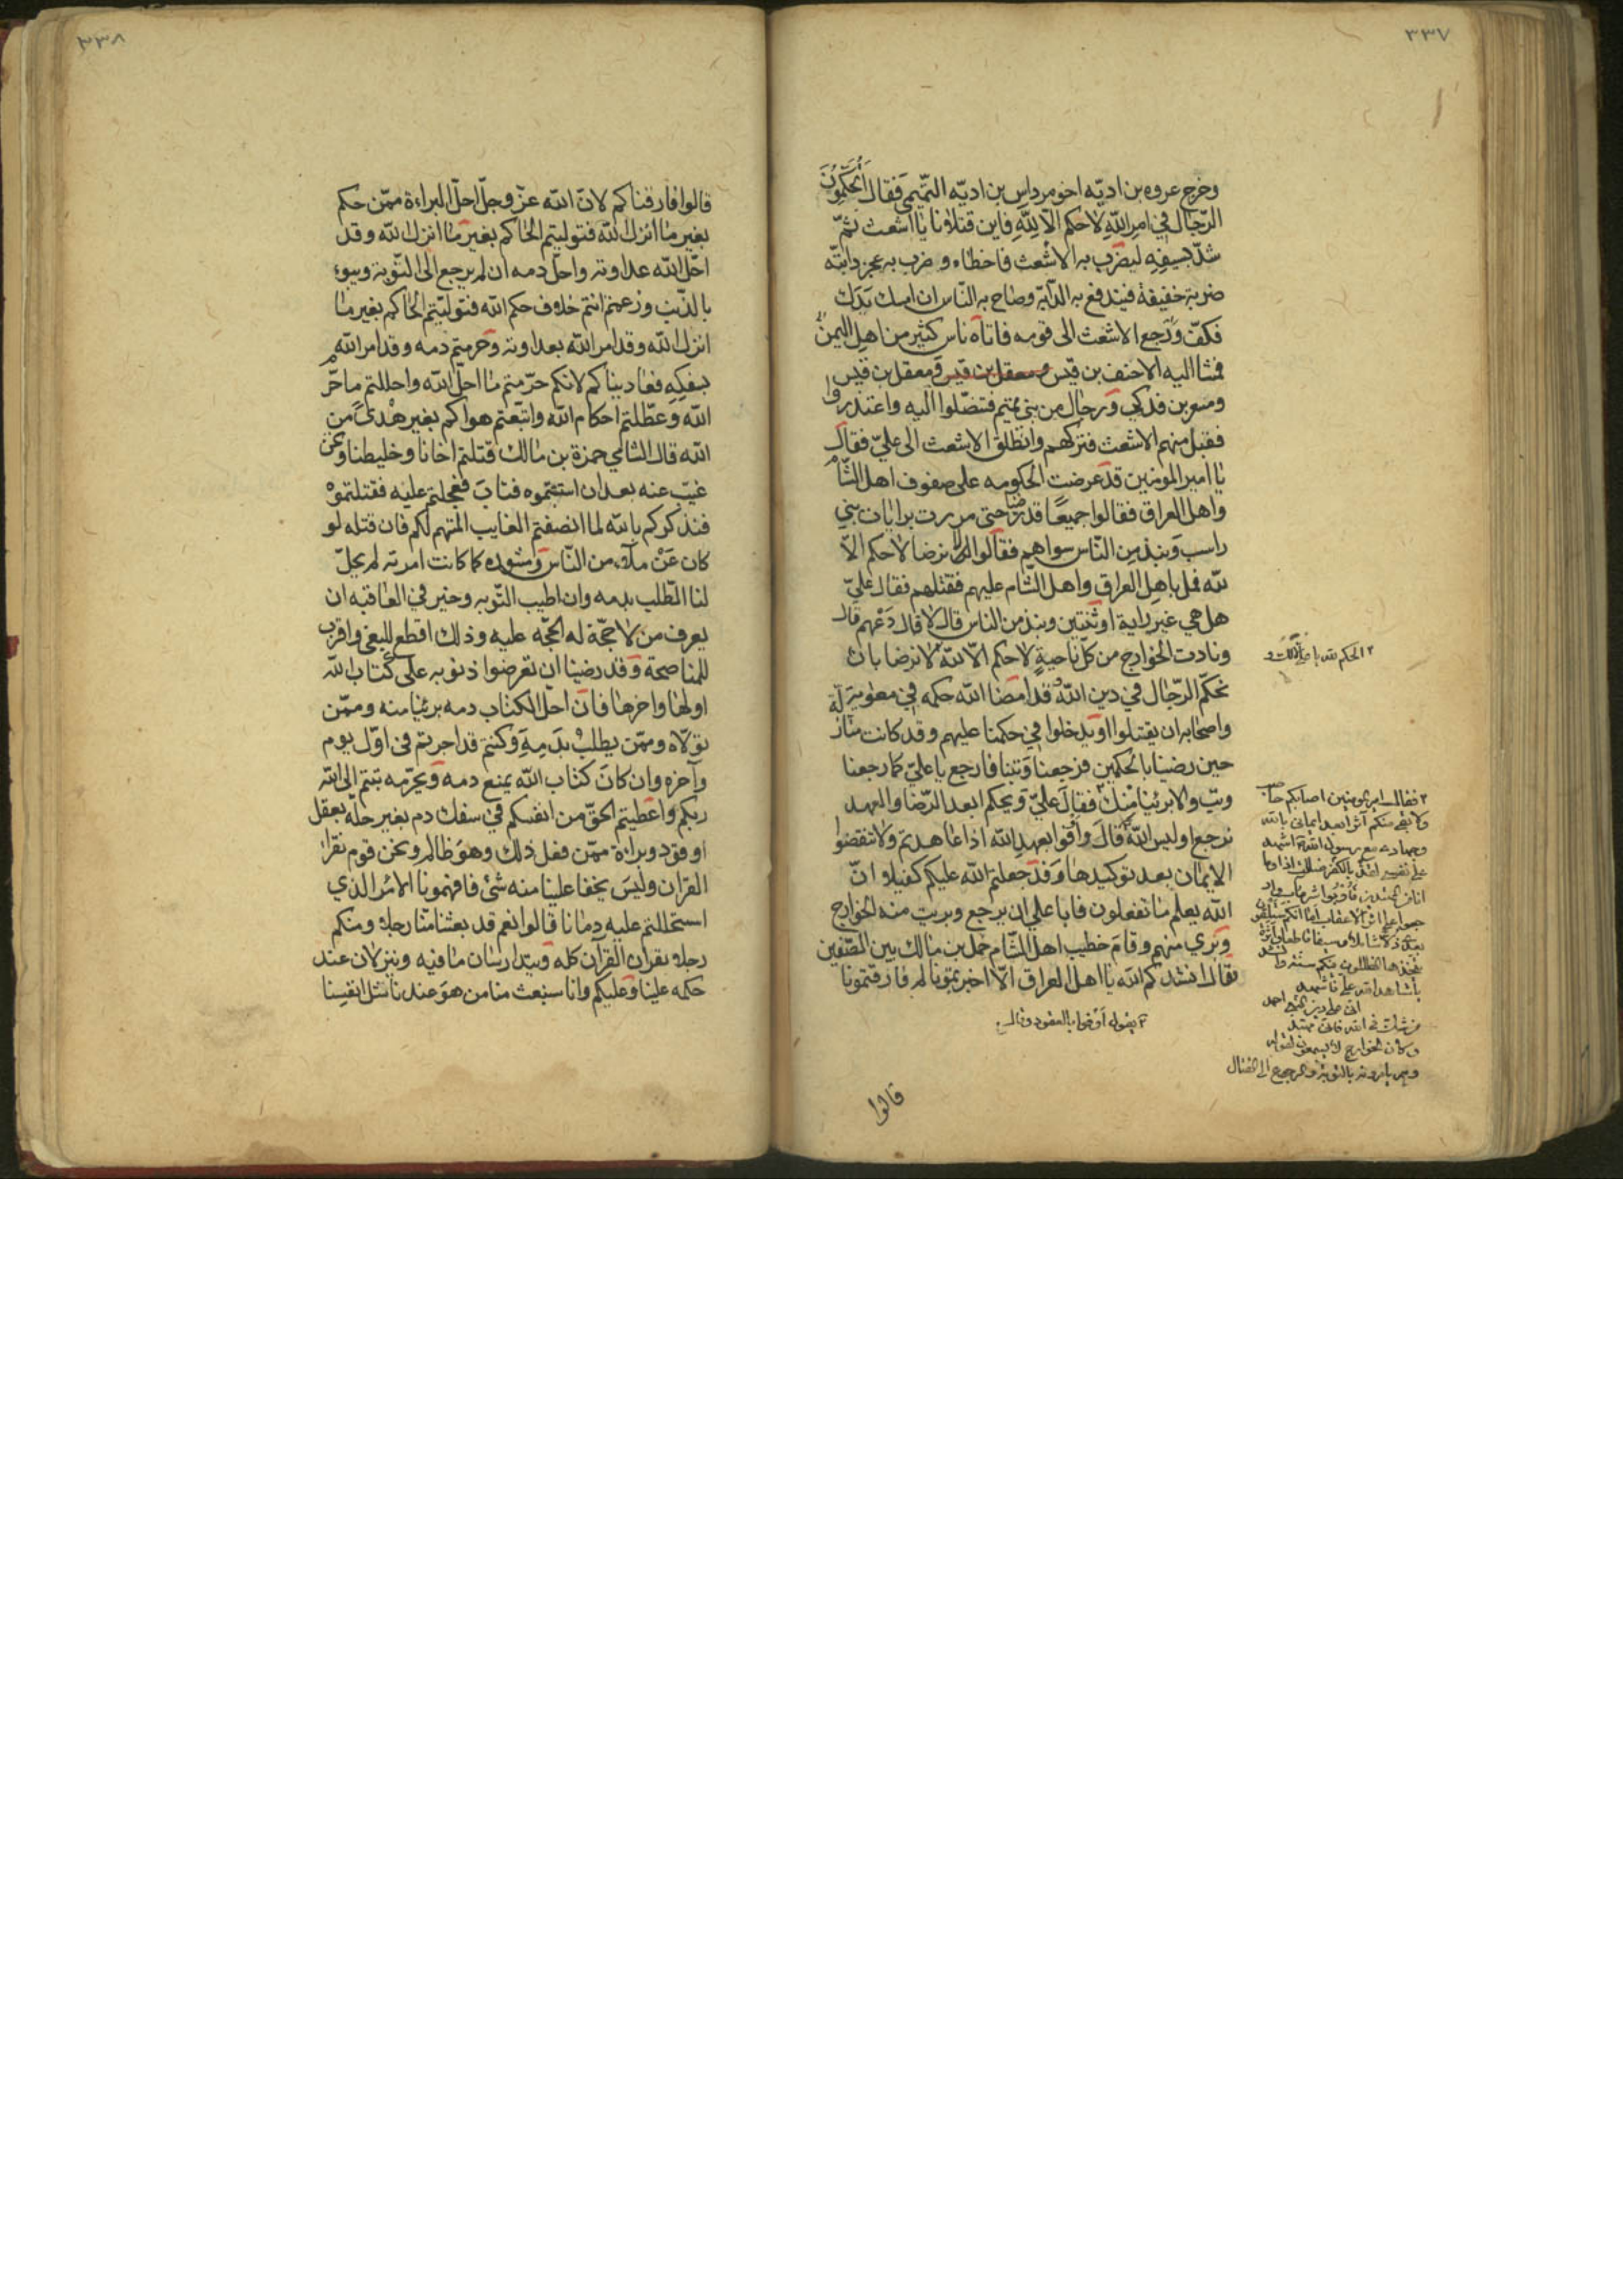 ٣٣٧
وخرج عروه بن اديّه اخو مرداس بن اديّه التّميمي فقال أتحكّمون
الرّجال في امر اللّه لا حكم الّا للّه فاين قتلانا يا اشعث ثمّ
شدّ بسيفه ليضرب به الاشعث فاخطاه وضرب به عجز دابّته
ضربة خفيفة فيندفع به الدّابّه وصاح به النّاس ان امسك يدك
فكفّ ورجع الاشعث الى قومه فاتاه ناس كثير من اهل اليمن
فمشا اليه الاحنف بن قيس ومعقل بن قيس ومعقل بن قيس
ومسعر بن فدكي ورجال من بني تميم فتنصّلوا اليه واعتذروا
فقبل منهم الاشعث فتركهم وانطلق الاشعث الى عليّ فقال
يا امير المومنين قد عرضت الحكومه على صفوف اهل الشّام
واهل العراق فقالوا جميعًا قد رضنا حتى مررت برايات بني
راسب ونبذ من النّاس سواهم فقالوا لا نرضا لا حكم الّا
للّه فمل باهل العراق واهل الشّام عليهم فقتلهم فقال عليّ
هل هي غير راية او ثنتين ونبذ من الناس قال لا قال دعهم قال
ونادت الخوارج من كلّ ناحية لا حكم الّا للّه لا نرضا بان
تحكّم الرّجال في دين اللّه قد امضا اللّه حكمه في معوية
واصحابه ان يقتلوا او يدخلوا في حكمنا عليهم وقد كانت منّا زلّة
حين رضينا بالحكمين فرجعنا وتبنا فارجع يا عليّ كما رجعنا
وتب والا برئنا منك فقال عليّ ويحكم ابعد الرّضا والعهد
نرجع اوليس اللّه قال وافوا بعهد اللّه اذا عاهدتم ولا تنقضوا
الايمان بعد توكيدها وقد جعلتم اللّه عليكم كفيلا انّ
اللّه يعلم ما تفعلون فابا علي ان يرجع وبريت منه الخوارج
وبري منهم وقام خطيب اهل الشّام حمل بن مالك بين الصّفين
فقال انشدكم اللّه يا اهل العراق الّا اخبرتمونا لم فارقتمونا
بقوله أوفوا بالعقود وقال
الحكم لله يا علي لا لك و
فقال امير المومنين اصابكم حاصب
ولا بقي منكم آثر ابعد ايماني بالله
وجهادي مع رسول الله اشهد
على نفسي بالكفر لقد ضللت اذا وما
انا من المهتدين فاوبوا شر ماب وار
جعوا على اثر الاعقاب اما انكم ستلقون
بعدي ذلا شاملا وسيفا قاطعا واثرة
يتخذها الظالمون فيكم سنة
يا شاهد الله علي فاشهد
اني على دين النبي احمد
من شك في الله فاني مهتد
وكان الخوارج لا يسمعون لقوله
وهم يامرونه بالتوبة والرجوع الى القتال
قالوا
٣٣٨
قالوا فارقناكم لانّ اللّه عزّ وجلّ احلّ البراءة ممّن حكم
بغير ما انزل اللّه فتوليتم الحاكم بغير ما انزل اللّه وقد
احلّ اللّه عداوته واحلّ دمه ان لم يرجع الى التّوبة ويبوء
بالذّنب وزعمتم انتم خلاف حكم اللّه فتولّيتم الحاكم بغير ما
انزل اللّه وقد امر اللّه بعداوته وحرمتم دمه وقد امر اللّه
بسفكه فعاديناكم لانكم حرّمتم ما احلّ اللّه واحللتم ما حرّم
اللّه وعطّلتم احكام اللّه واتبعتم هواكم بغير هدىً من
اللّه قال الشامي حمزة بن مالك قتلتم اخانا وخليطنا ونحن
غيّب عنه بعد ان استتبتموه فتاب فعجلتم عليه فقتلتموه
فنذكركم باللّه لما انصفتم الغايب المتهم لكم فان قتله لو
كان عن ملاء من النّاس ومشوره كما كانت امرته لم يحلّ
لنا الطّلب بدمه وان اطيب التّوبه وخير في العاقبه ان
يعرف من لا حجّة له الحجّه عليه وذلك اقطع للبغي واقرب
للمناصحة وقد رضينا ان تعرضوا ذنوبه على كتاب اللّه
اولها واخرها فان احلّ الكتاب دمه برئنا منه وممّن
تولّاه وممّن يطلب بدمه وكنتم قد اجرتم في اوّل يوم
وآخره وان كان كتاب اللّه يمنع دمه ويحرّمه تبتم الى اللّه
ربكم واعطيتم الحقّ من انفسكم في سفك دم بغير حلّه بعقل
او قود وبراءة ممّن فعل ذلك وهو ظالم ونحن قوم نقرا
القران وليس يخفا علينا منه شئ فافهمونا الامر الذي
استحللتم عليه دمانا قالوا نعم قد بعثنا منّا رجلا ومنكم
رجلا يقران القرآن كله ويتدارسان ما فيه وينزلان عند
حكمه علينا وعليكم وانا سنبعث منا من هو عندنا مثل انفسنا